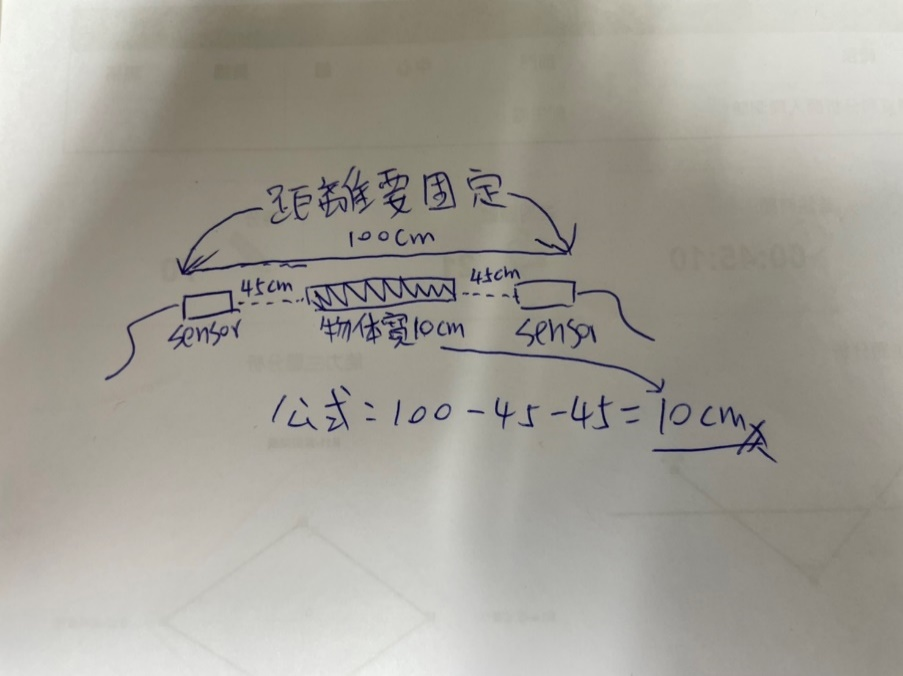 距離要固定
100cm
45cm
45cm
sensor
物体寬10cm
sensor
公式=100-45-45=10cm